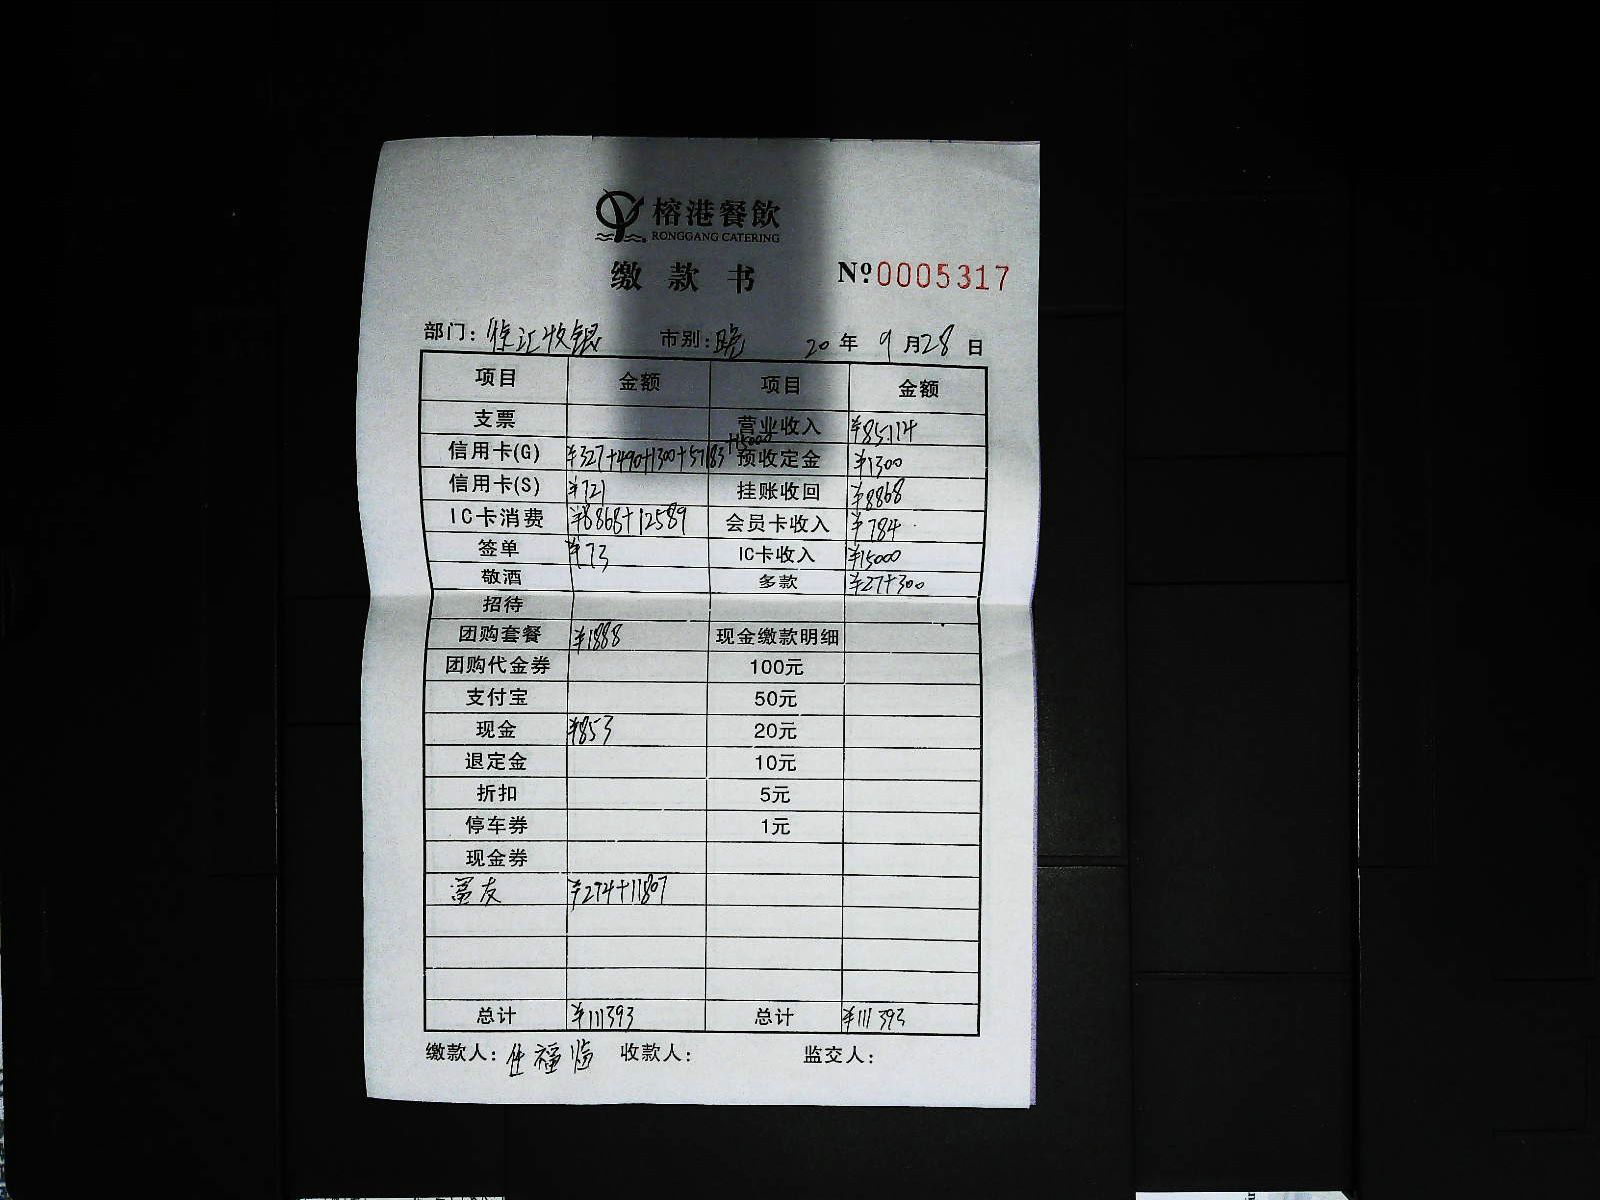 榕港餐飲
RONGGANG CATERING
缴款书 №0005317
部门: 徐汇收银 市别: 晚 20年 9月28日
项目 金额 项目 金额
支票 营业收入 ¥85114
信用卡(G) ¥327+490+1300+57183+15000 预收定金 ¥1300
信用卡(S) ¥721 挂账收回 ¥8868
IC卡消费 ¥8868+12589 会员卡收入 ¥784
签单 ¥73 IC卡收入 ¥15000
敬酒 多款 ¥27+300
招待
团购套餐 ¥1888 现金缴款明细
团购代金券 100元
支付宝 50元
现金 ¥853 20元
退定金 10元
折扣 5元
停车券 1元
现金券
富友 ¥274+11807
总计 ¥111393 总计 ¥111393
缴款人: 任福临 收款人: 监交人: